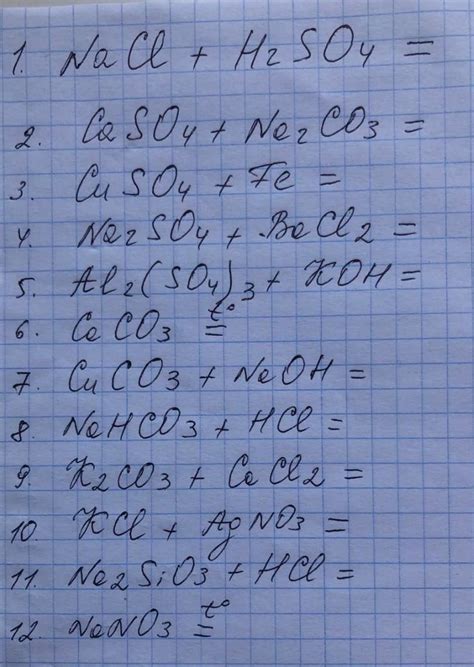 1. NaCl + H2SO4 =
2. CaSO4 + Na2CO3 =
3. CuSO4 + Fe =
4. Na2SO4 + BaCl2 =
5. Al2(SO4)3 + KOH =
6. CaCO3 t° =
7. CuCO3 + NaOH =
8. NaHCO3 + HCl =
9. K2CO3 + CaCl2 =
10. KCl + AgNO3 =
11. Na2SiO3 + HCl =
12. NaNO3 t° =